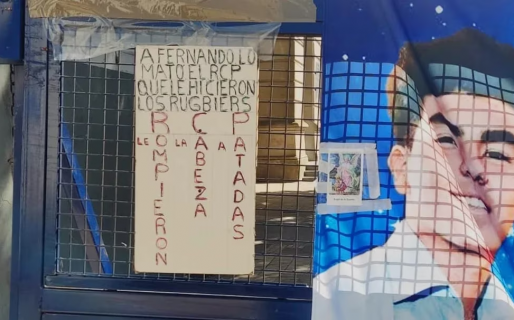 A FERNANDO LO
MATO EL RCP
QUE LE HICIERON
LOS RUGBIERS
ROMPIERON CABEZA PATADAS
LE LA A